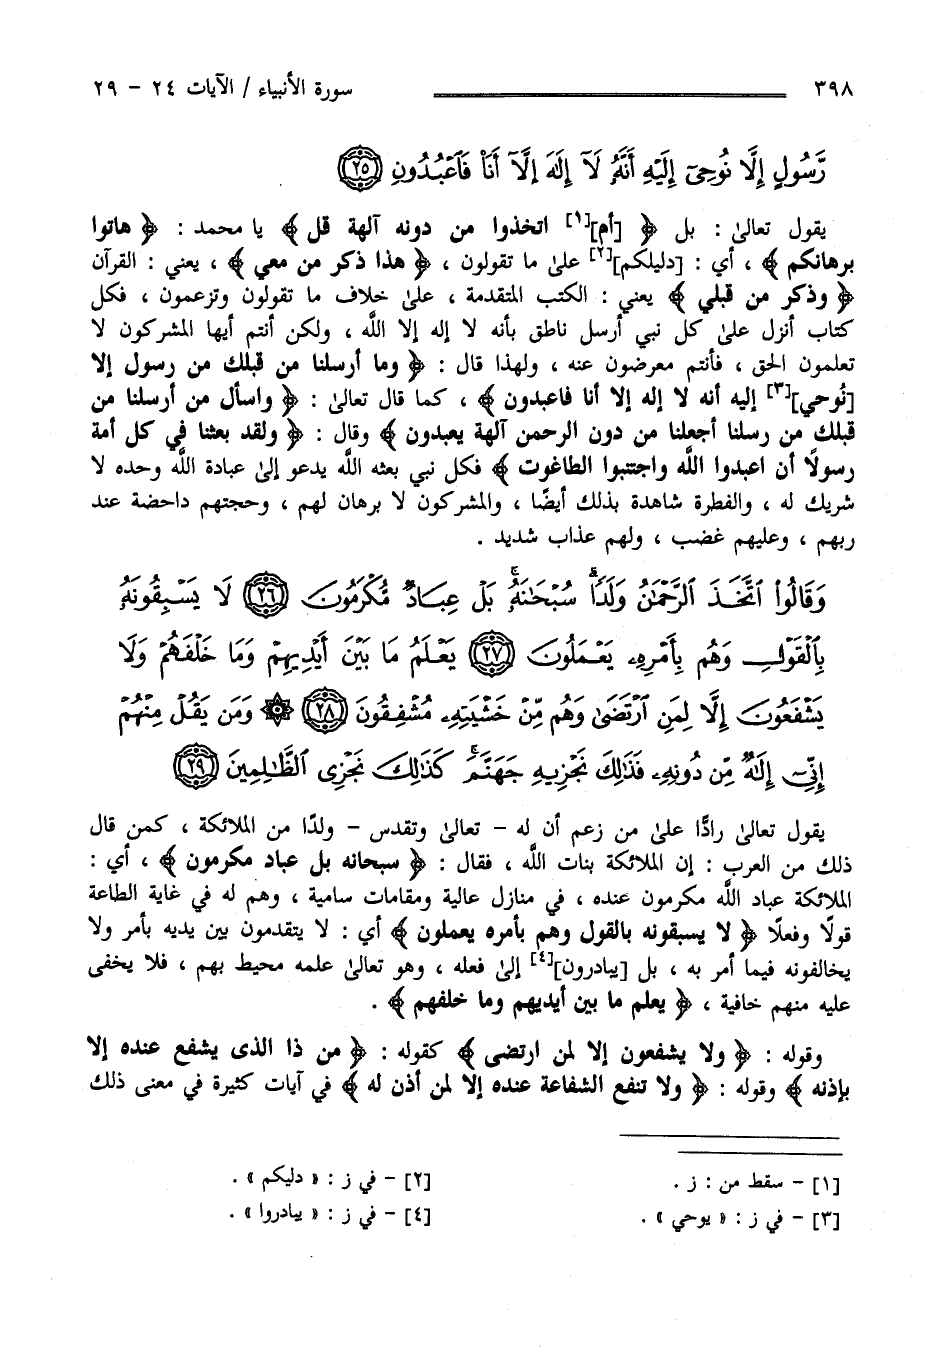 ٣٩٨ سورة الأنبياء / الآيات ٢٤ – ٢٩
رَّسُولٍ إِلَّا نُوحِىٓ إِلَيْهِ أَنَّهُۥ لَآ إِلَٰهَ إِلَّآ أَنَا۠ فَٱعْبُدُونِ ٢٥
يقول تعالىٰ : بل ﴿ [أم][١] اتخذوا من دونه آلهة قل ﴾ يا محمد : ﴿ هاتوا
برهانكم ﴾ ، أي : [دليلكم][٢] علىٰ ما تقولون ، ﴿ هذا ذكر من معي ﴾ ، يعني : القرآن
﴿ وذكر من قبلي ﴾ يعني : الكتب المتقدمة ، علىٰ خلاف ما تقولون وتزعمون ، فكل
كتاب أنزل علىٰ كل نبي أرسل ناطق بأنه لا إله إلا اللَّه ، ولكن أنتم أيها المشركون لا
تعلمون الحق ، فأنتم معرضون عنه ، ولهذا قال : ﴿ وما أرسلنا من قبلك من رسول إلا
[نُوحي][٣] إليه أنه لا إله إلا أنا فاعبدون ﴾ ، كما قال تعالىٰ : ﴿ واسأل من أرسلنا من
قبلك من رسلنا أجعلنا من دون الرحمن آلهة يعبدون ﴾ وقال : ﴿ ولقد بعثنا في كل أمة
رسولًا أن اعبدوا اللَّه واجتنبوا الطاغوت ﴾ فكل نبي بعثه اللَّه يدعو إلىٰ عبادة اللَّه وحده لا
شريك له ، والفطرة شاهدة بذلك أيضًا ، والمشركون لا برهان لهم ، وحجتهم داحضة عند
ربهم ، وعليهم غضب ، ولهم عذاب شديد .
وَقَالُوا۟ ٱتَّخَذَ ٱلرَّحْمَٰنُ وَلَدًا ۗ سُبْحَٰنَهُۥ ۚ بَلْ عِبَادٌ مُّكْرَمُونَ ٢٦ لَا يَسْبِقُونَهُۥ
بِٱلْقَوْلِ وَهُم بِأَمْرِهِۦ يَعْمَلُونَ ٢٧ يَعْلَمُ مَا بَيْنَ أَيْدِيهِمْ وَمَا خَلْفَهُمْ وَلَا
يَشْفَعُونَ إِلَّا لِمَنِ ٱرْتَضَىٰ وَهُم مِّنْ خَشْيَتِهِۦ مُشْفِقُونَ ٢٨ ۞ وَمَن يَقُلْ مِنْهُمْ
إِنِّىٓ إِلَٰهٌ مِّن دُونِهِۦ فَذَٰلِكَ نَجْزِيهِ جَهَنَّمَ ۚ كَذَٰلِكَ نَجْزِى ٱلظَّٰلِمِينَ ٢٩
يقول تعالىٰ رادًّا علىٰ من زعم أن له – تعالىٰ وتقدس – ولدًا من الملائكة ، كمن قال
ذلك من العرب : إن الملائكة بنات اللَّه ، فقال : ﴿ سبحانه بل عباد مكرمون ﴾ ، أي :
الملائكة عباد اللَّه مكرمون عنده ، في منازل عالية ومقامات سامية ، وهم له في غاية الطاعة
قولًا وفعلًا ﴿ لا يسبقونه بالقول وهم بأمره يعملون ﴾ أي : لا يتقدمون بين يديه بأمر ولا
يخالفونه فيما أمر به ، بل [يبادرون][٤] إلىٰ فعله ، وهو تعالىٰ علمه محيط بهم ، فلا يخفى
عليه منهم خافية ، ﴿ يعلم ما بين أيديهم وما خلفهم ﴾ .
وقوله : ﴿ ولا يشفعون إلا لمن ارتضى ﴾ كقوله : ﴿ من ذا الذى يشفع عنده إلا
بإذنه ﴾ وقوله : ﴿ ولا تنفع الشفاعة عنده إلا لمن أذن له ﴾ في آيات كثيرة في معنى ذلك
[١] – سقط من : ز . [٢] – في ز : « دليكم » .
[٣] – في ز : « يوحي » . [٤] – في ز : « يبادروا » .